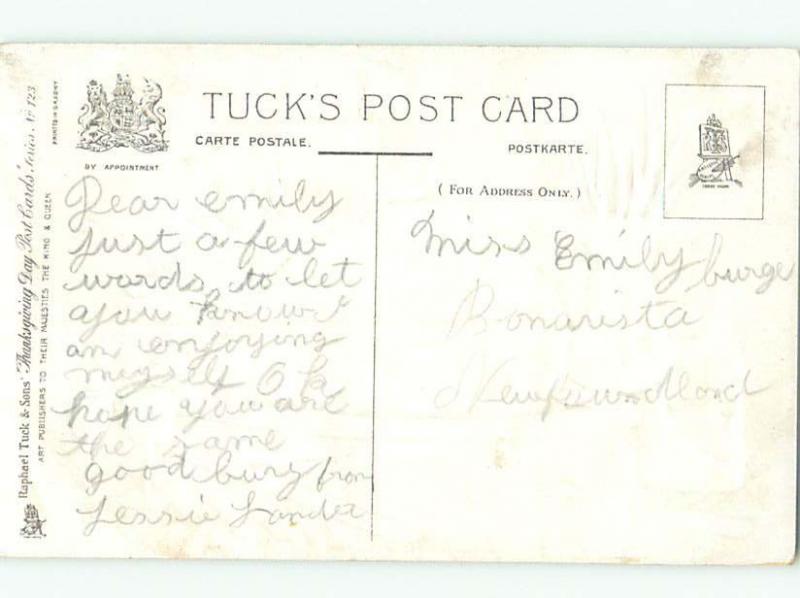 TUCK'S POST CARD
CARTE POSTALE.
POSTKARTE.
BY APPOINTMENT
( FOR ADDRESS ONLY. )
Raphael Tuck & Sons' "Thanksgiving Day" Post Cards Series, No 123.
ART PUBLISHERS TO THEIR MAJESTIES THE KING & QUEEN
PRINTED IN SAXONY
Dear emily
just a few
words to let
you know I
am enjoying
myself O k
hope you are
the same
good burg from
Jessie
Miss Emily burge
Bonavista
Newfoundland